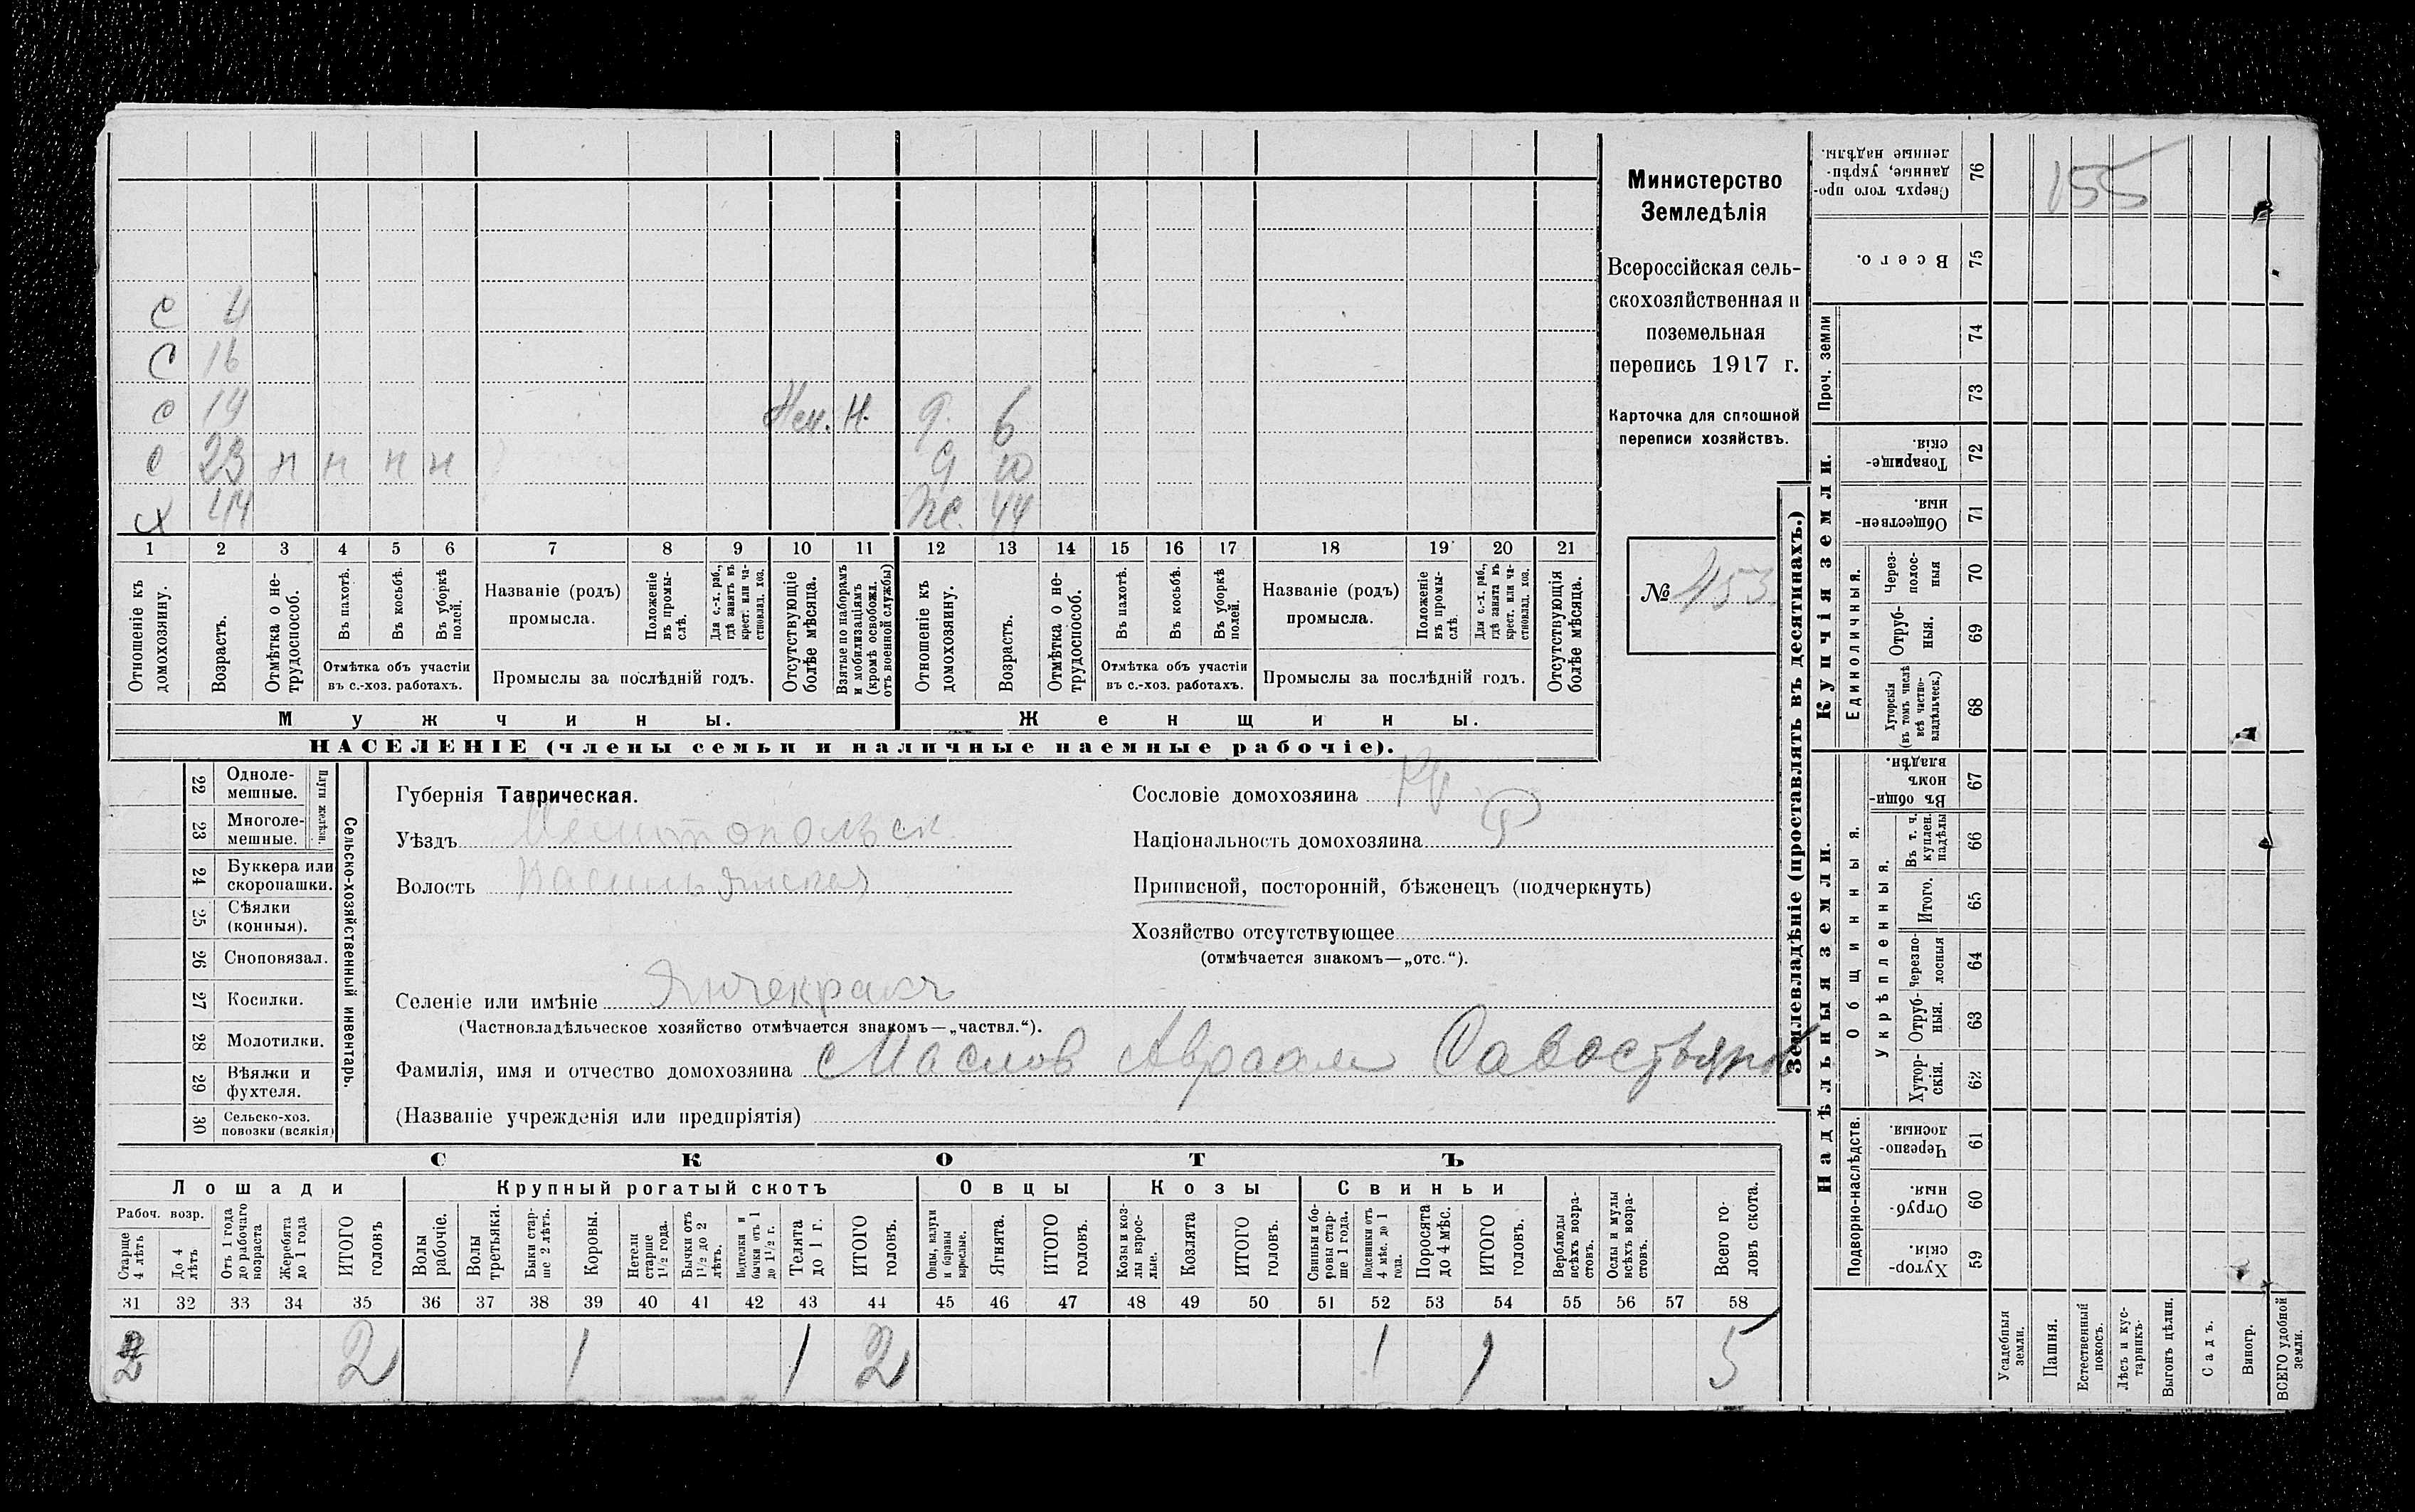 С 4
С 16
с 19 Нем. Н. д. 6
с 23 н н н н д 10
х 44 же. 44
1 2 3 4 5 6 7 8 9 10 11 12 13 14 15 16 17 18 19 20 21
Отношеніе къ домохозяину.
Возрастъ.
Отмѣтка о не-
трудоспособ.
Въ пахотѣ.
Въ косьбѣ.
Въ уборкѣ
полей.
Отмѣтка объ участіи
въ с.-хоз. работахъ.
Названіе (родъ)
промысла.
Положеніе
въ промы-
слѣ.
Для с.-х. раб.,
гдѣ занятъ въ
крест. или ча-
стновлад. хоз.
Промыслы за послѣдній годъ.
Отсутствующіе
болѣе мѣсяца.
Взятые по наборамъ
и мобилизаціямъ
(кромѣ освобожд.
отъ военной службы)
Отношеніе къ
домохозяину.
Возрастъ.
Отмѣтка о не-
трудоспособ.
Въ пахотѣ.
Въ косьбѣ.
Въ уборкѣ
полей.
Отмѣтка объ участіи
въ с.-хоз. работахъ.
Названіе (родъ)
промысла.
Положеніе
въ промы-
слѣ.
Для с.-х. раб.,
гдѣ занята въ
крест. или ча-
стновлад. хоз.
Промыслы за послѣдній годъ.
Отсутствующія
болѣе мѣсяца.
Мужчины.
Женщины.
НАСЕЛЕНІЕ (члены семьи и наличные наемные рабочіе).
Министерство
Земледѣлія
Всероссійская сель-
скохозяйственная и
поземельная
перепись 1917 г.
Карточка для сплошной
переписи хозяйствъ.
№ 453
22 Одноле-
мешные.
23 Многоле-
мешные.
Плуги желѣзн.
24 Буккера или
скоропашки.
25 Сѣялки
(конныя).
26 Сноповязал.
27 Косилки.
28 Молотилки.
29 Вѣялки и
фухтеля.
30 Сельско-хоз.
повозки (всякія)
Сельско-хозяйственный инвентарь.
Губернія Таврическая.
Уѣздъ Мелитопольск.
Волость Васильевская
Селеніе или имѣніе Янчекракъ
(Частновладѣльческое хозяйство отмѣчается знакомъ—„частвл.“).
Фамилія, имя и отчество домохозяина Маслов Авраам Савостьянов
(Названіе учрежденія или предпріятія)
Сословіе домохозяина
Національность домохозяина
Приписной, посторонній, бѣженецъ (подчеркнуть)
Хозяйство отсутствующее
(отмѣчается знакомъ—„отс.“).
СКОТЪ
Лошади
Рабоч. возр.
Старше
4 лѣтъ
До 4
лѣтъ
Отъ 1 года
до рабочаго
возраста
Жеребята
до 1 года
ИТОГО
головъ
Крупный рогатый скотъ
Волы
рабочіе.
Волы
третьяки.
Быки стар-
ше 2 лѣтъ.
Коровы.
Нетели
старше
1½ года.
Бычки отъ
1½ до 2
лѣтъ.
Подтелки и
бычки отъ 1
до 1½ г.
Телята
до 1 г.
ИТОГО
головъ.
Овцы
Овцы, валухи
и бараны
взрослые.
Ягнята.
ИТОГО
головъ.
Козы
Козы и коз-
лы взрос-
лые.
Козлята
ИТОГО
головъ.
Свиньи
Свиньи и бо-
ровы стар-
ше 1 года.
Подсвинки отъ
4 мѣс. до 1
года.
Поросята
до 4 мѣс.
ИТОГО
головъ.
Верблюды
всѣхъ возра-
стовъ.
Ослы и мулы
всѣхъ возра-
стовъ.
Всего го-
ловъ скота.
31 32 33 34 35 36 37 38 39 40 41 42 43 44 45 46 47 48 49 50 51 52 53 54 55 56 57 58
2 2 1 1 2 1 1 5
Землевладѣніе (проставлять въ десятинахъ.)
Сверхъ того про-
данные, укрѣп-
ленные надѣлы.
76
155
Всего.
75
Проч. земли
74
73
Купчія земли.
Товарище-
скія.
72
Обществен-
ныя
71
Единоличныя.
Через-
полос-
ныя
70
Отруб-
ныя.
69
Хуторскія
(въ томъ числѣ
всѣ частно-
владѣльческ.)
68
Надѣльныя земли.
Общинныя.
Въ общи-
номъ
владѣн.
67
Укрѣпленныя.
Въ т. ч.
куплен.
надѣлы
66
Итого.
65
Черезпо-
лосныя
64
Отруб-
ныя.
63
Хутор-
скія.
62
Подворно-наслѣдств.
Черезпо-
лосныя.
61
Отруб-
ныя.
60
Хутор-
скія.
59
Усадебныя
земли.
Пашня.
Естественный
покосъ.
Лѣсъ и кус-
тарникъ.
Выгонъ цѣлин.
Садъ.
Виногр.
ВСЕГО удобной
земли.